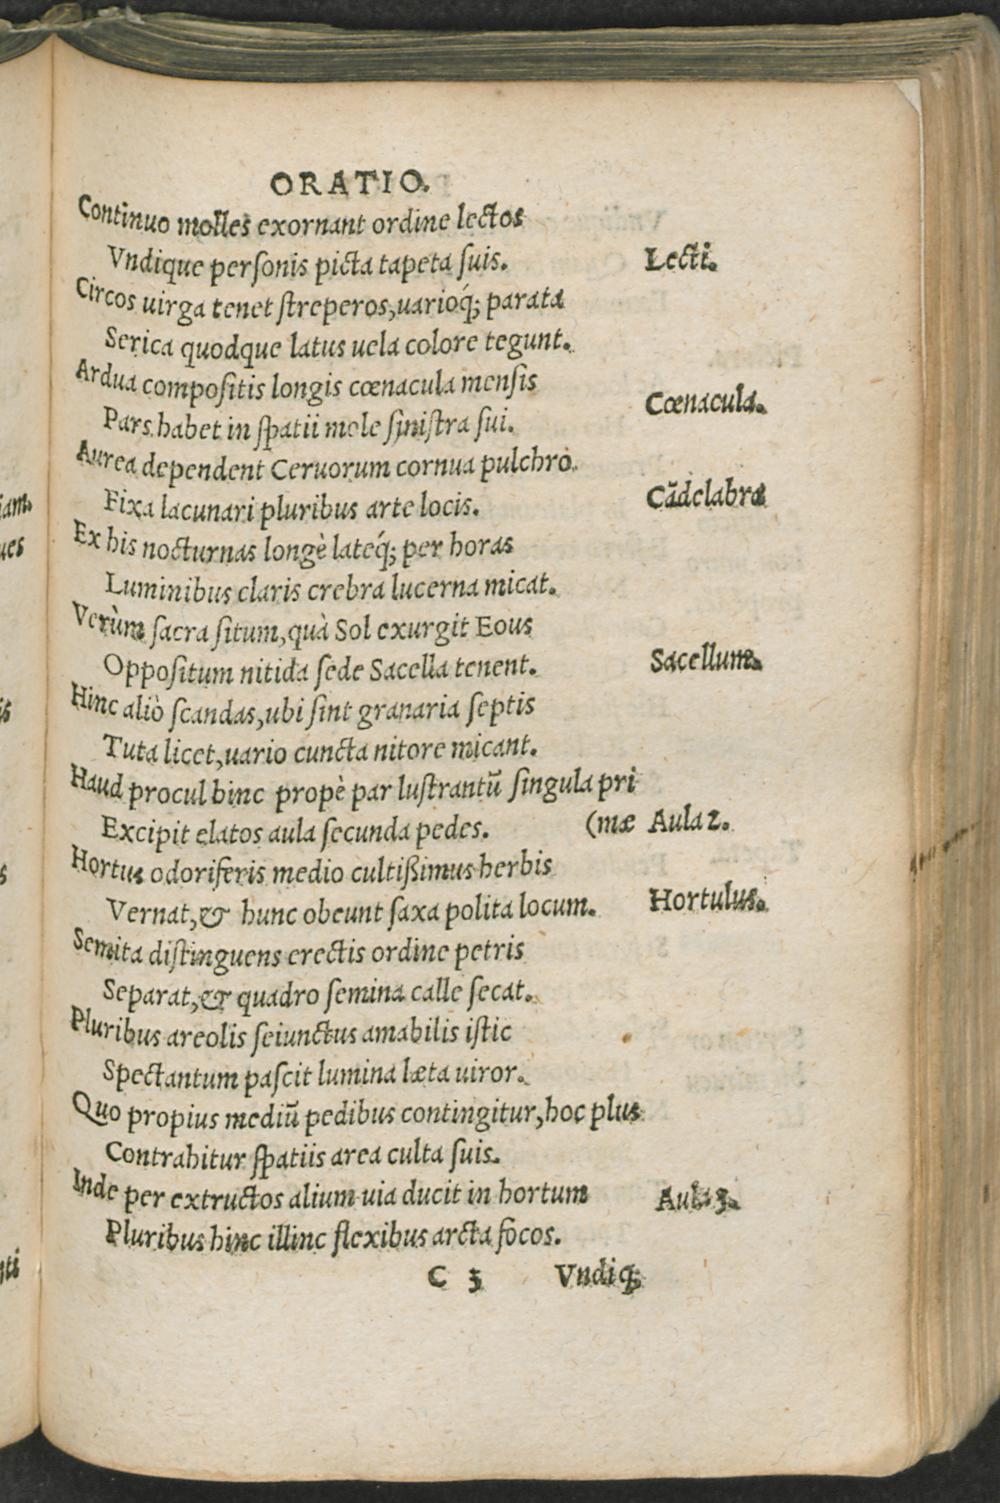 ORATIO.
Continuo molles exornant ordine lectos
Vndique personis picta tapeta suis.
Lecti.
Circos uirga tenet streperos, uarioq́; parata
Serica quodque latus uela colore tegunt.
Ardua compositis longis cœnacula mensis
Cœnacula.
Pars habet in spatii mole sinistra sui.
Aurea dependent Ceruorum cornua pulchro
Fixa lacunari pluribus arte locis.
Cādelabra
Ex his nocturnas longè lateq́; per horas
Luminibus claris crebra lucerna micat.
Verùm sacra situm, quà Sol exurgit Eous
Oppositum nitida sede Sacella tenent.
Sacellum.
Hinc aliò scandas, ubi sint granaria septis
Tuta licet, uario cuncta nitore micant.
Haud procul hinc propè par lustrantū singula pri
Excipit elatos aula secunda pedes. (mæ
Aula 2.
Hortus odoriferis medio cultißimus herbis
Vernat, & hunc obeunt saxa polita locum.
Hortulus.
Semita distinguens erectis ordine petris
Separat, & quadro semina calle secat.
Pluribus areolis seiunctus amabilis istic
Spectantum pascit lumina læta uiror.
Quo propius mediū pedibus contingitur, hoc plus
Contrahitur spatiis area culta suis.
Inde per extructos alium uia ducit in hortum
Aula 3.
Pluribus hinc illinc flexibus arcta focos.
C 3 Vndiq;